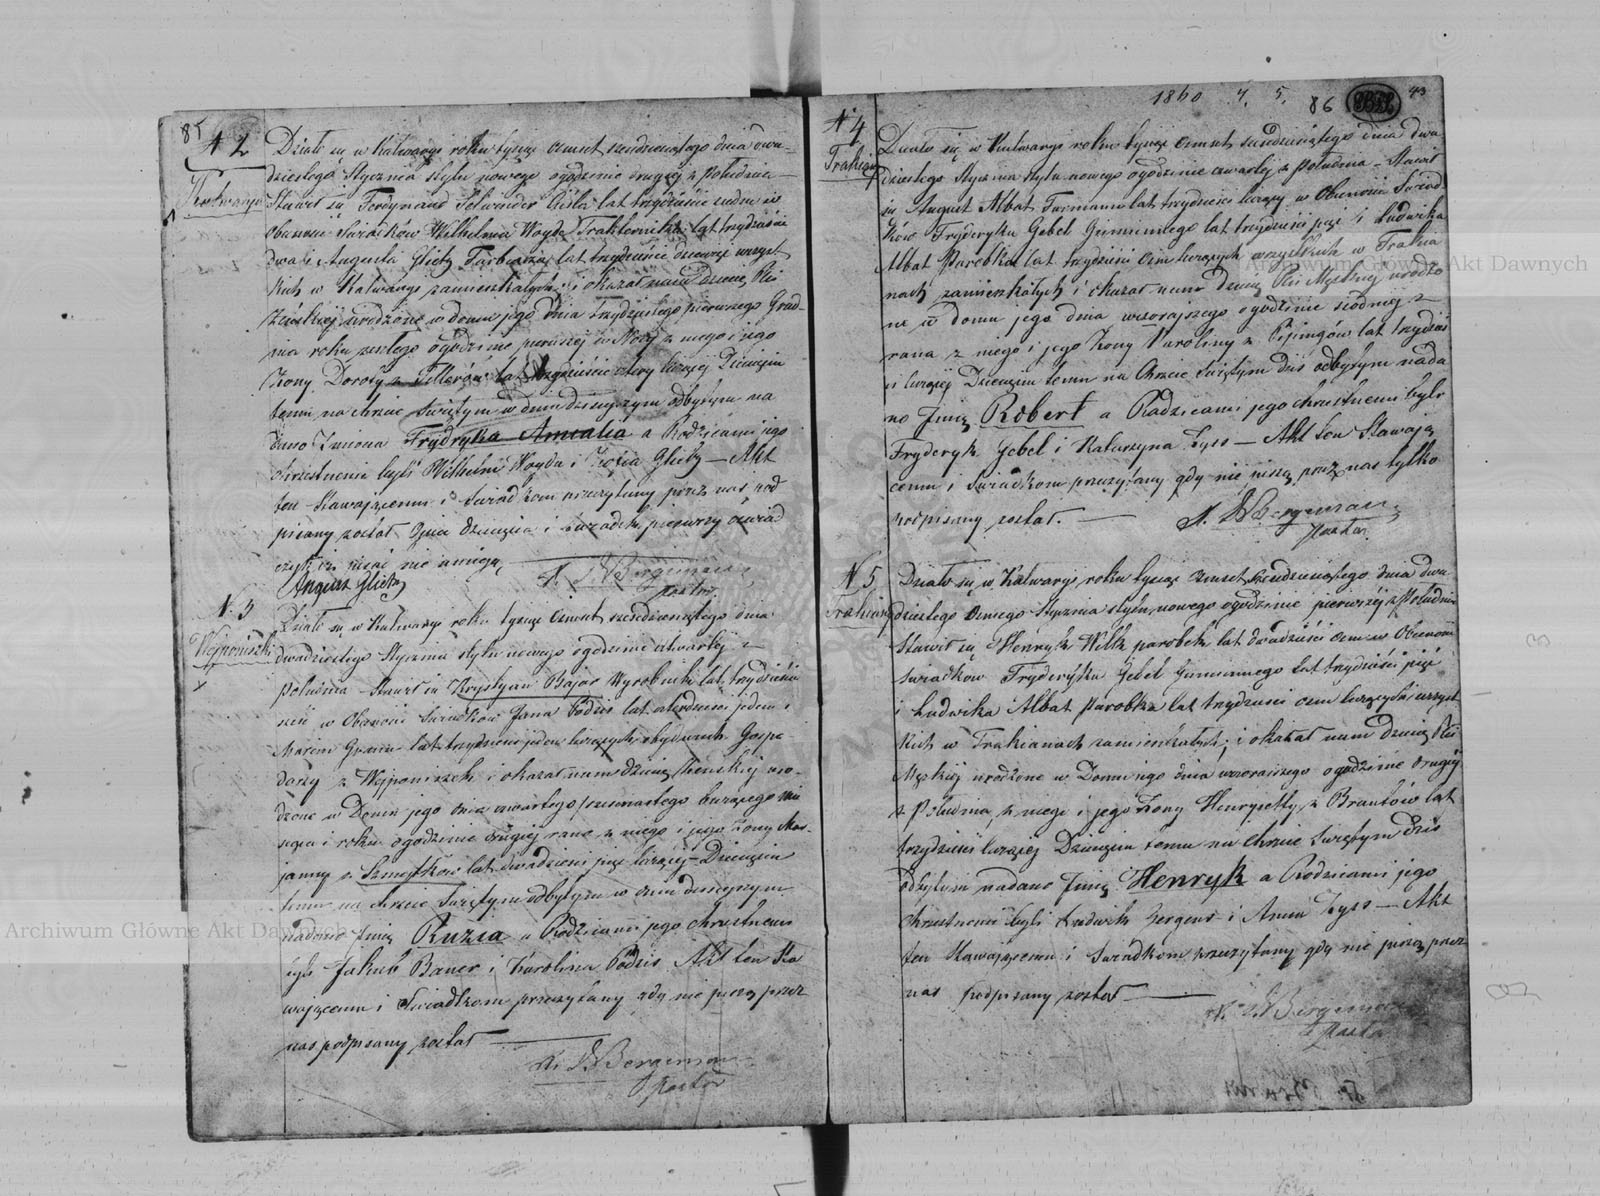 85
N 2
Kalwarya
Działo się w Kalwaryi roku tysiąc ośmset sześćdziesiątego dnia dwu-
dziestego Stycznia stylu nowego o godzinie drugiej z Południa —
Stawił się Ferdynand lat trzydzieści siedm w
Obecności Świadków Wilhelma Woyda Traktiernika lat trzydzieści
dwa i Augusta Glietz Farbierza lat trzydzieści dziewięć wszyst
kich w Kalwaryi zamieszkałych i okazał nam dziecię Płci
Żeńskiej urodzone w domu jego dnia trzydziestego pierwszego Grud-
nia roku zeszłego o godzinie pierwszej w Nocy z niego i jego
Żony Doroty z Tellerów lat trzydzieści cztery liczącej Dziecięciu
temu na chrzcie Świętym w dniu dzisiejszym odbytym na
dano Imiona Frydryka Amalia a Rodzicami jego
chrzestnemi byli Wilhelm Woyda i Zofia Glietz — Akt
ten Stawającemu i Świadkom przeczytany przez nas pod
pisany został Ojciec dziecięcia i świadek pierwszy oświad
czyli iż pisać nie umieją
August Glietz
Bergeman
Pastor
N. 3
Wejponiszki
Działo się w Kalwaryi roku tysiąc ośmset sześćdziesiątego dnia
dwudziestego Stycznia stylu nowego o godzinie czwartej z
południa Stawił się Krystyan Bajor Wyrobnik lat trzydzieści
sześć w Obecności Świadków Jana Podzis lat czterdzieści jeden i
lat trzydzieści jeden liczących obydwóch Gospo-
darzy z Wejponiszek i okazał nam dziecię Żeńskiej uro-
dzone w Domu jego dnia czwartego/szesnastego bieżącego mie
siąca i roku o godzinie drugiej rano z niego i jego Żony Mar-
janny z Szmejtków lat dwadzieścia pięć liczącej — Dziecięciu
temu na chrzcie Świętym odbytym w dniu dzisiejszym
nadano Imię Ruzia a Rodzicami jego chrzestnemi
byli Jakub Bauer i Karolina Podzis Akt ten Sta
wającemu i Świadkom przeczytany gdy nie piszą przez
nas podpisany został
Bergeman
Pastor
1860 4. 5. 86 43
N 4
Trakiany
Działo się w Kalwaryi roku tysiąc ośmset sześćdziesiątego dnia dwu
dziestego Stycznia stylu nowego o godzinie czwartej z południa — Stawił
się August Albat Furmann lat trzydzieści liczący w Obecności Świad-
ków Fryderyka Gebel Gumiennego lat trzydzieści pięć i Ludwika
Albat Parobka lat trzydzieści ośm liczących wszystkich w Trakia
nach zamieszkałych i okazał nam dziecię Płci Męzkiej urodzo
ne w domu jego dnia wczorajszego o godzinie siódmej z
rana z niego i jego Żony Karoliny z Pipingów lat trzydzieś
ci liczącej Dziecięciu temu na Chrzcie Świętym dziś odbytym nada
no Imię Robert a Rodzicami jego chrzestnemi byli
Fryderyk Gebel i Katarzyna Zyss — Akt ten Stawają
cemu i Świadkom przeczytany gdy nie piszą przez nas tylko
podpisany został.
Bergeman
Pastor
N 5
Trakiany
Działo się w Kalwaryi roku tysiąc ośmset sześćdziesiątego dnia dwu
dziestego ósmego Stycznia stylu nowego o godzinie pierwszej z Południa
Stawił się Henryk Wilk parobek lat dwadzieścia ośm w Obecności
świadków Fryderyka Gebel Gumiennego lat trzydzieści pięć
i Ludwika Albat Parobka lat trzydzieści ośm liczących wszyst
kich w Trakianach zamieszkałych; i okazał nam dziecię Płci
Męzkiej urodzone w Domu jego dnia wczorajszego o godzinie drugiej
z Południa, z niego i jego Żony Henryetty z Brautów lat
trzydzieści liczącej Dziecięciu temu na chrzcie Świętym dziś
odbytym nadano Imię Henryk a Rodzicami jego
chrzestnemi byli Ludwik Gergens i Anna Zyss — Akt
ten Stawającemu i Świadkom przeczytany gdy nie piszą przez
nas podpisany został
Bergeman
Pastor
Archiwum Główne Akt Dawnych
Archiwum Główne Akt Dawnych